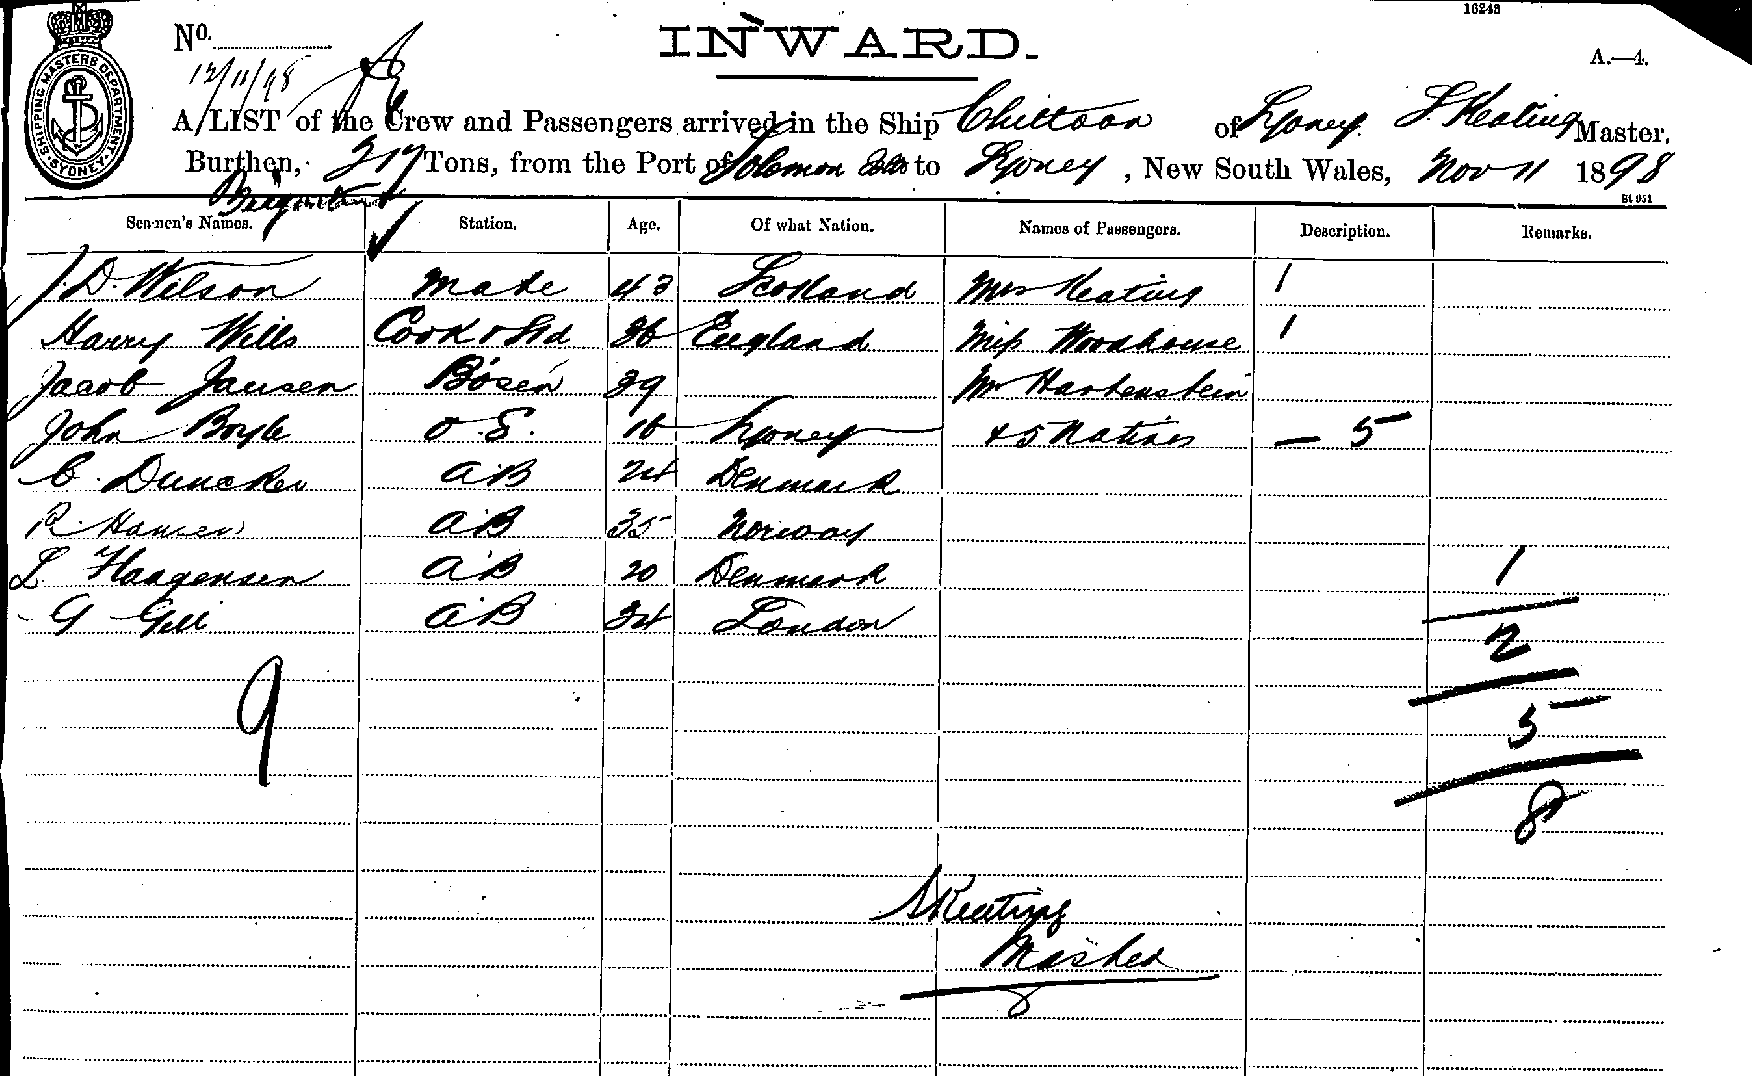 16243
No.
INWARD.
A.—4.
12/11/98
SHIPPING MASTERS DEPARTMENT SYDNEY
A LIST of the Crew and Passengers arrived in the Ship Chittoor of Sydney S. Keating Master,
Burthen, 217 Tons, from the Port of Solomon Islds to Sydney, New South Wales, Nov 11 1898
Brigantine
Seamen's Names. Station. Age. Of what Nation. Names of Passengers. Description. Remarks.
J. D. Wilson Mate 43 Scotland Mrs Keating 1
Harry Wills Cook & Std 36 England Miss Woodhouse 1
Jacob Jansen Bosen 39 Mr Hartenstein
John Boyle O.S. 18 Sydney + 5 Natives — 5
C. Duncker AB 24 Denmark
R. Hansen AB 35 Norway
L. Haagensen AB 20 Denmark 1
G Gill AB 34 London
2
9
5
8
S Keating
Master